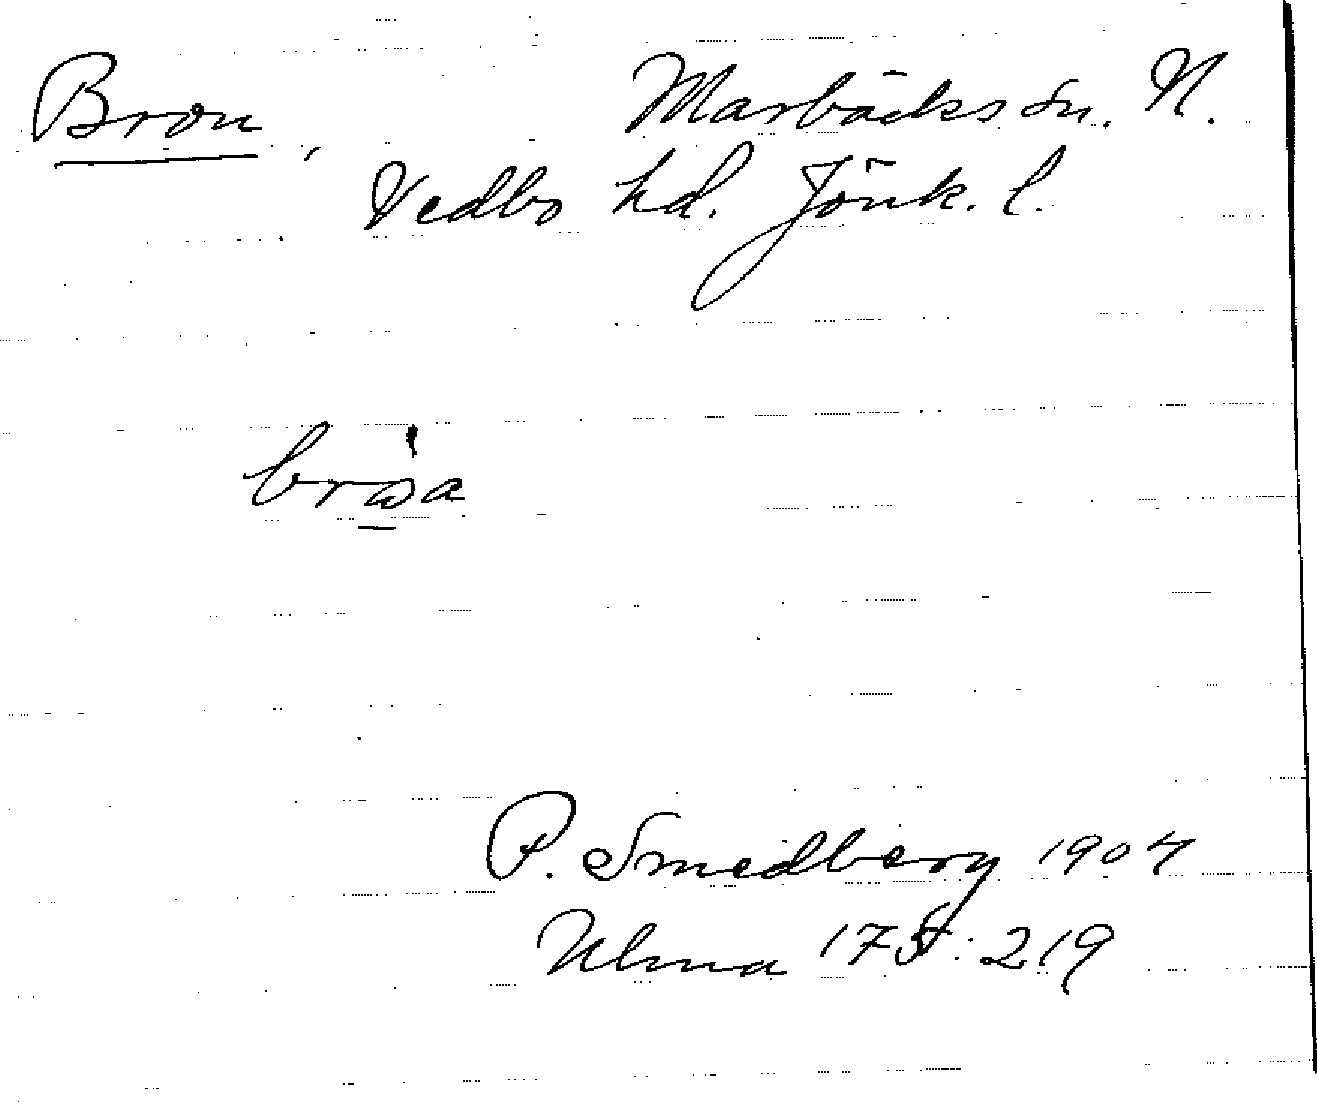 Bron, Marbäcks sn. N.
Vedbo hd. Jönk. l.
P. Smedberg 1904
Ulma 175:219